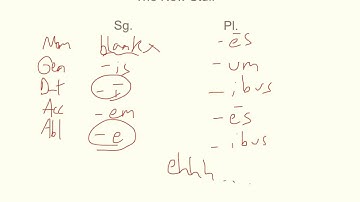 The New Stuff
Sg. Pl.
Nom blank x -ēs
Gen -is -um
Dat -ī -ibus
Acc -em -ēs
Abl -e -ibus
ehhh...